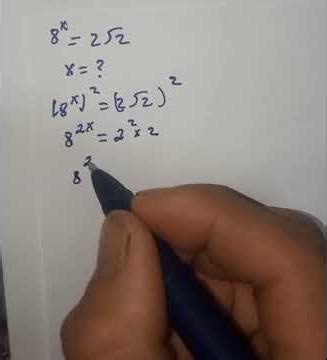 8ˣ = 2√2
x = ?
(8ˣ)² = (2√2)²
8²ˣ = 2² × 2
8²